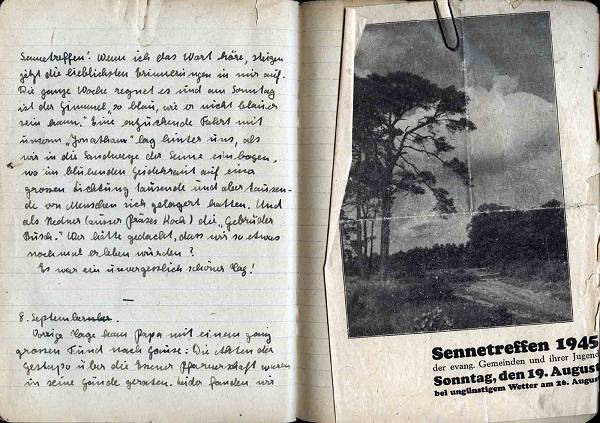 Sennetreffen! Wenn ich das Wort höre, steigen
jetzt die lieblichsten Erinnerungen in mir auf.
Die ganze Woche regnet es und am Sonntag
ist der Himmel „so blau, wie er nicht blauer
sein kann." Eine entzückende Fahrt mit
unserm „Jonathan" lag hinter uns, als
wir in die Sandwege der Senne einbogen,
wo im blühenden Heidekraut auf einer
grossen Lichtung tausende und aber tausen-
de von Menschen sich gelagert hatten. Und
als Redner (ausser Präses Koch) die „Gebrüder
Busch." Wer hätte gedacht, dass wir so etwas
noch mal erleben würden?
Es war ein unvergesslich schöner Tag!
8. September.
Tage kam Papa mit einem ganz
grossen Fund nach Hause: Die Akten der
Gestapo über die Essener Pfarrerschaft waren
in seine Hände geraten. Leider fanden wir
Sennetreffen 1945
der evang. Gemeinden und ihrer Jugend
Sonntag, den 19. August
bei ungünstigem Wetter am 26. August